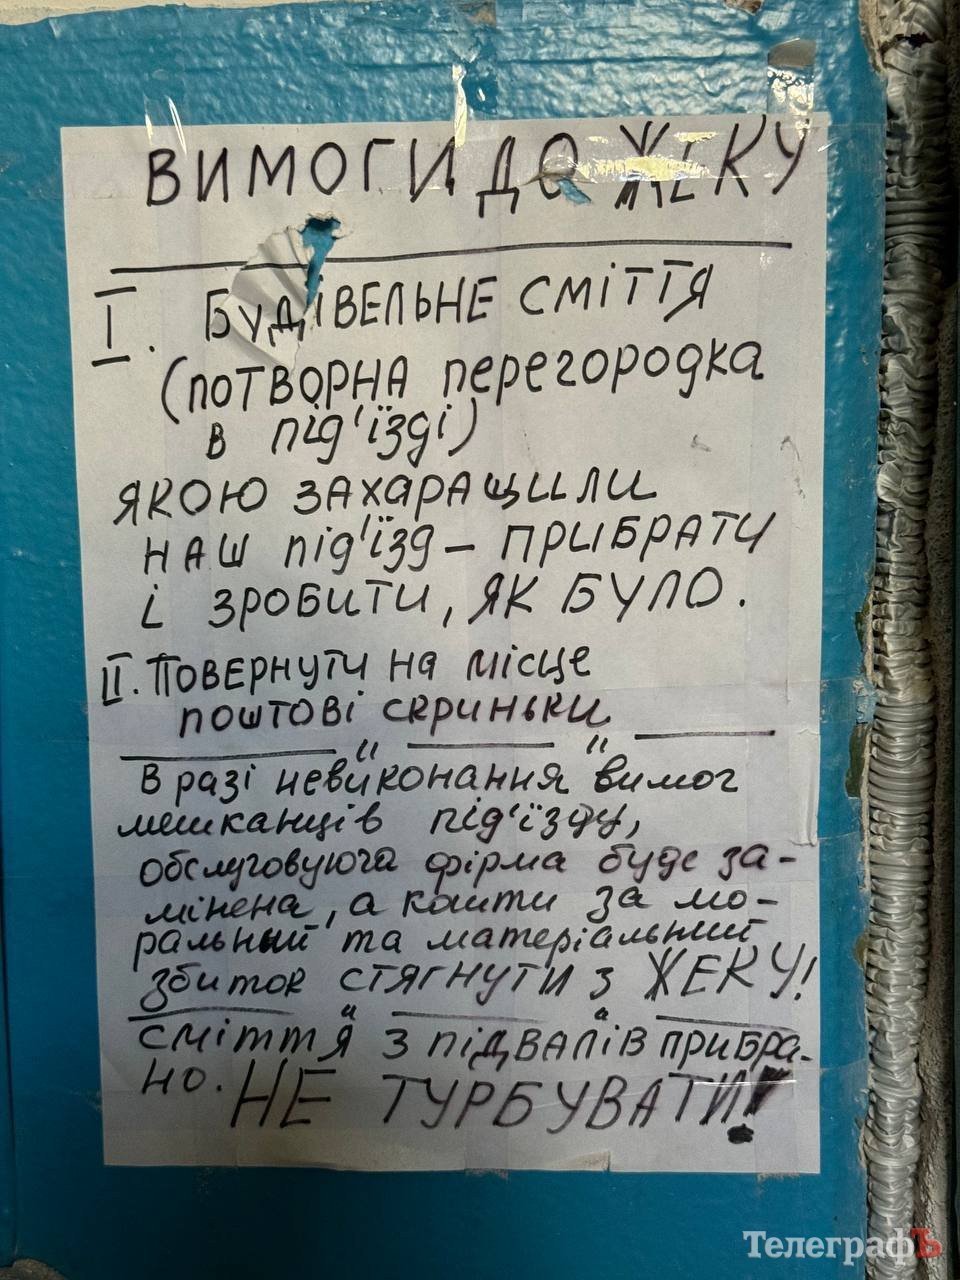 ВИМОГИ ДО ЖЕКУ
I. БУДІВЕЛЬНЕ СМІТТЯ
(ПОТВОРНА перегородка
в під'їзді)
ЯКОЮ ЗАХАРАЩИЛИ
НАШ під'їзд – ПРИБРАТИ
І ЗРОБИТИ, ЯК БУЛО.
II. ПОВЕРНУТИ НА місце
поштові скриньки
В разі невиконання вимог
мешканців під'їзду,
обслуговуюча фірма буде за-
мінена, а кошти за мо-
ральний та матеріальний
збиток СТЯГНУТИ З ЖЕКУ!
СМІТТЯ З ПІДВАЛІВ ПРИБРА-
НО. НЕ ТУРБУВАТИ!
ТелеграфЪ